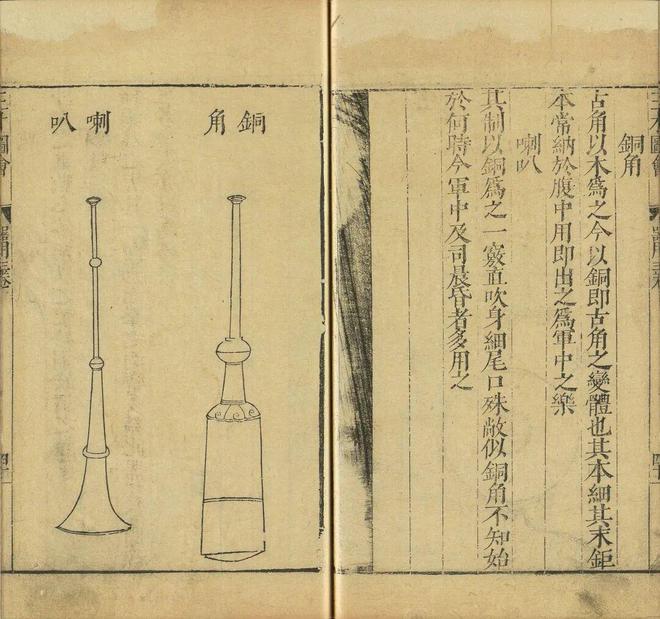 銅角
古角以木爲之今以銅即古角之變體也其本細其末鉅
本常納於腹中用即出之爲軍中之樂
喇叭
其制以銅爲之一竅直吹身細尾口殊敞似銅角不知始
於何時今軍中及司晨昏者多用之
銅角
喇叭